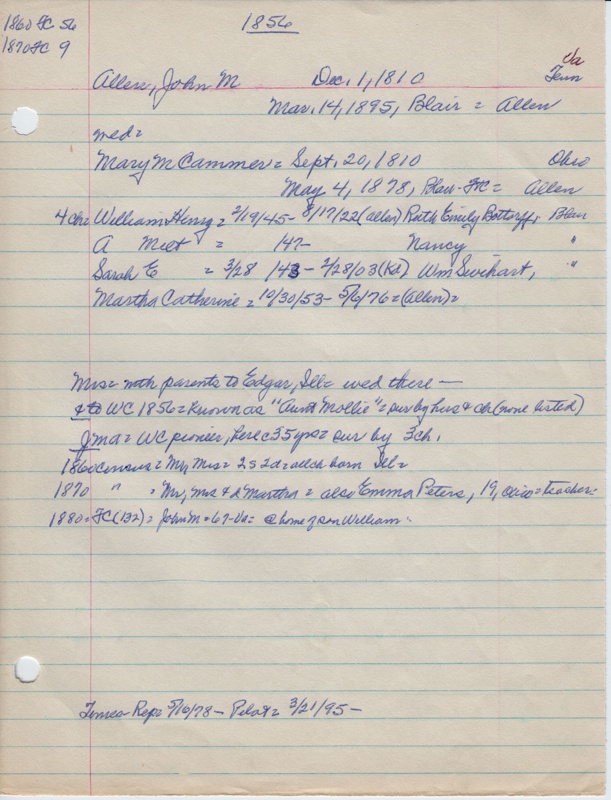 1860 FC 56
1870 FC 9
1856
Va
Allen, John M Dec. 1, 1810 Tenn
Mar. 14, 1895, Blair = Allen
wed=
Mary McCammer = Sept. 20, 1810 Ohio
May 4, 1878, Blair-FC = Allen
4 ch = William Henry = 2/19/45 - 8/17/22 (Allen) Ruth Emily Bottorff, Blair
A Melt = /47- Nancy "
Sarah E = 3/28 /43 - 2/28/03 (Kd) Wm Swihart, "
Martha Catherine = 10/30/53 - 5/6/76 = (Allen) =
Mrs = with parents to Edgar, Ill = wed there —
& to WC 1856 = known as "Aunt Mollie" = sur by hus & ch (none listed)
J m d = WC pioneer, here c 35 yrs = sur by 3 ch.
1860 census = Mr, Mrs = 2s 2d = all ch born Ill =
1870 " = Mr, Mrs & d Martha = also Emma Peters, 19, Ohio = teacher =
1880 = FC (132) = John M = 67 - Va = @ home of son William
Times Rep = 5/16/78 - Pilot = 3/21/95 -